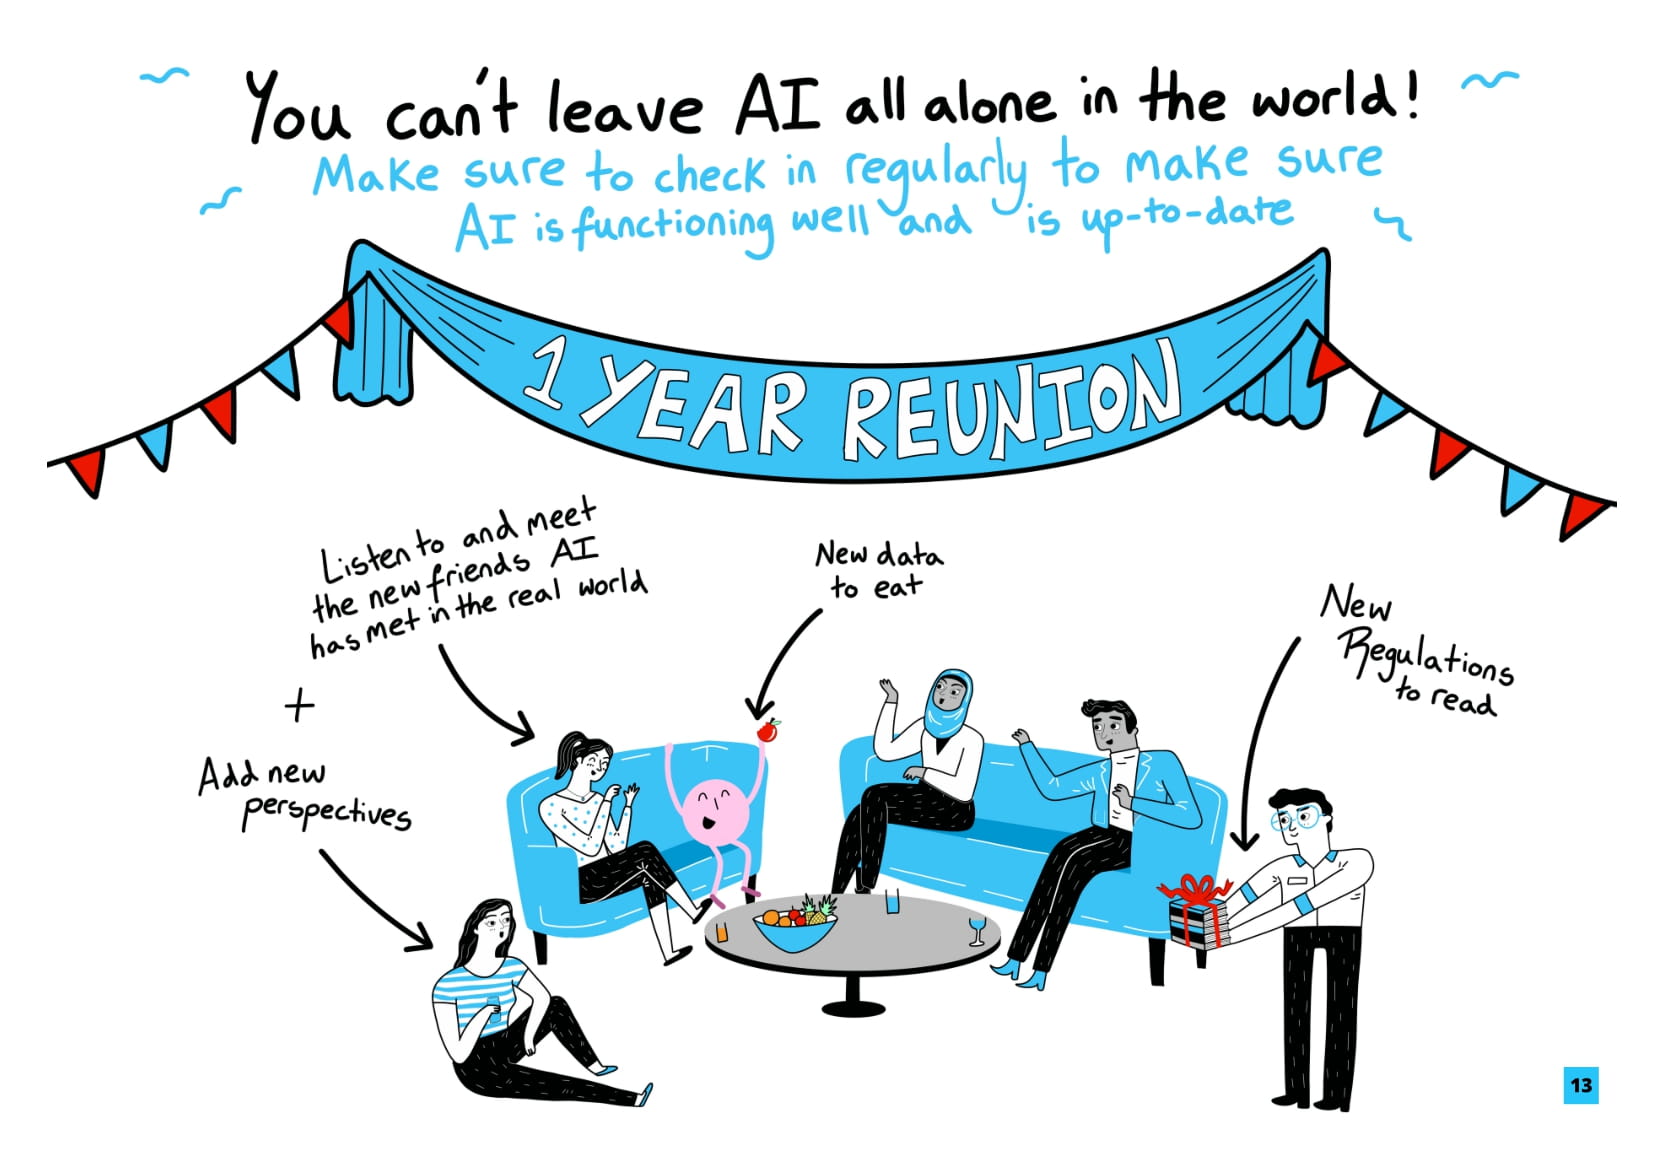 You can't leave AI all alone in the world!
Make sure to check in regularly to make sure
AI is functioning well and is up-to-date
1 YEAR REUNION
Listen to and meet
the new friends AI
has met in the real world
+
Add new
perspectives
New data
to eat
New
Regulations
to read
13